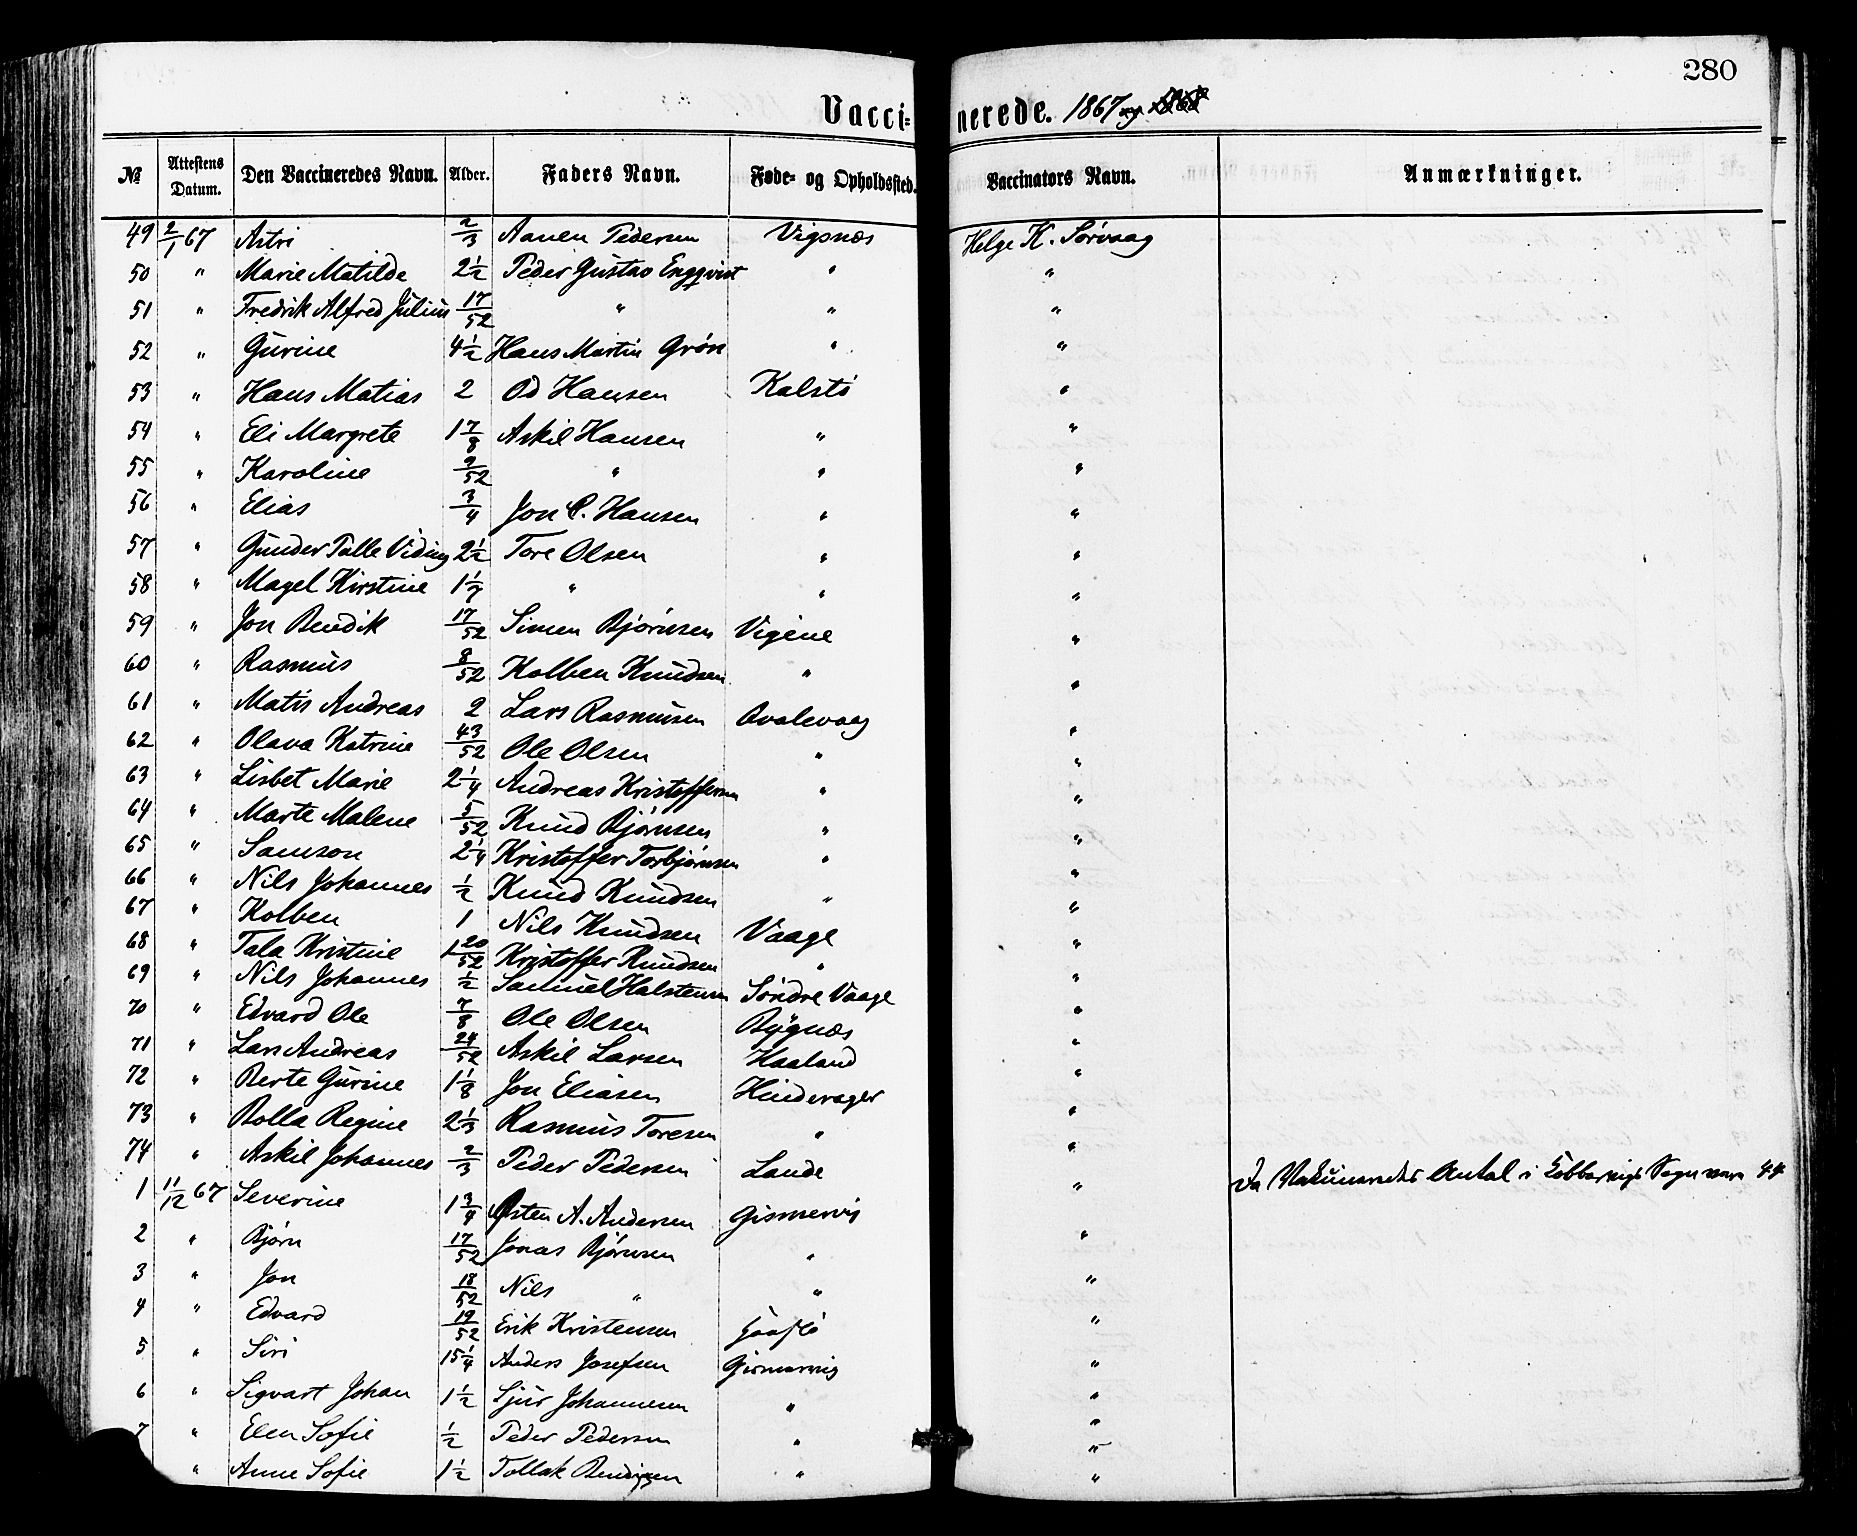 280
Vaccinerede. 1867 og
№ Attestens Datum. Den Vaccineredes Navn. Alder. Faders Navn. Føde- og Opholdssted. Vaccinators Navn. Anmærkninger.
49 2/1 67 Astri 2/3 Aanen Pedersen Vigsnæs Helge K. Sørvaag
50 " Marie Matilde 2 1/2 Peder Gustav Engqvist " "
51 " Fredrik Alfred Julius 17/52 " " "
52 " Gurine 4 1/2 Hans Martin Grøn " "
53 " Hans Matias 2 Od Hansen Kalstø "
54 " Eli Margrete 1 7/8 Askil Hansen " "
55 " Karoline 9/52 " " "
56 " Elias 3/4 Jon C. Hansen " "
57 " Gunder Tølle Viding 2 1/2 Tore Olsen " "
58 " Magel Kirstine 1 1/7 " " "
59 " Jon Bendik 17/52 Simen Bjørnsen Vigene "
60 " Rasmus 8/52 Kolben Knudsen " "
61 " Matis Andreas 2 Lars Rasmusen Qvalevaag "
62 " Olava Katrine 43/52 Ole Olsen " "
63 " Lisbet Marie 2 1/4 Andreas Kristoffersen " "
64 " Marte Malene 5/52 Knud Bjørnsen " "
65 " Samson 2 1/4 Kristoffer Torbjørnsen " "
66 " Nils Johannes 1/2 Knud Knudsen " "
67 " Kolben 1 Nils Knudsen Vaage "
68 " Tala Kristine 1 20/52 Kristoffer Knudsen " "
69 " Nils Johannes 1/2 Samuel Halstensen Søndre Vaage "
70 " Edvard Ole 7/8 Ole Olsen Bygnæs "
71 " Lars Andreas 24/52 Askil Larsen Haaland "
72 " Berte Gurine 1 1/8 Jon Eliasen Hinderager "
73 " Bolla Regine 2 1/3 Rasmus Toresen " "
74 " Askil Johannes 2/3 Peder Pedersen Lande "
1 11/12 67 Severine 1 3/4 Østen A. Andersen Gismervig " Antal i Sogn 44
2 " Bjørn 17/52 Jonas Bjørnsen " "
3 " Jon 18/52 Nils " " "
4 " Edvard 19/52 Erik Kristensen "
5 " Siri 15 1/4 Anders Josefsen Gismervig "
6 " Sigvart Johan 1 1/2 Sjur Johannesen " "
7 " Elen Sofie 1/2 Peder Pedersen " "
" Anne Sofie 1 1/2 Tollak " "